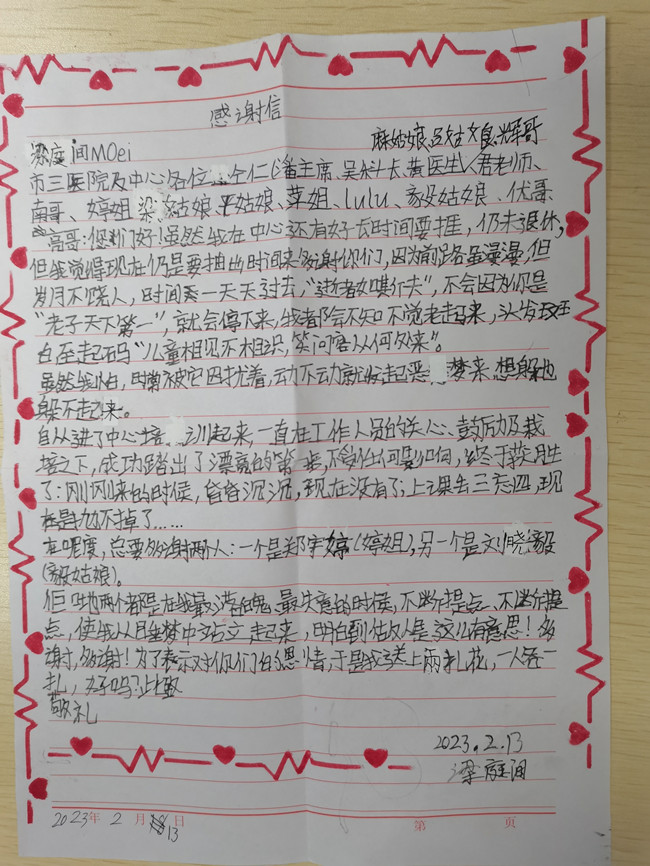 感谢信
麻姑娘、吕姑娘、辉哥
间MOei
市三医院及中心各位 仝仁(潘主席、吴科长、黄医生、君老师、
南哥、婷姐、梁 姑娘、平姑娘、萍姐、lulu、毅姑娘、伟哥
高哥:您们好!虽然我在中心还有好长时间要捱,仍未退休,
但我觉得现在仍是要抽出时间来多谢你们,因为前路虽漫漫,但
岁月不饶人,时间系一天天过去,“逝者如斯乎”,不会因为你是
“老子天下第一”,就会停下来,我都会不知不觉老起来,头发
白至起码“儿童相见不相识,笑问客从何外来”。
虽然我怕,时常被它困扰着,动不动就发起恶 梦来,想躲也
躲不起来。
自从进了中心培 训起来,一直在工作人员的关心、鼓厉及栽
培之下,成功踏出了漂亮的第一步,不负任何影响,终于获胜
了:刚刚来的时候,昏昏沉沉,现在没有了;上课去三忘四,现
在是 不掉了……
在呢度,总要多谢两人:一个是郑宇婷(婷姐),另一个是刘晓毅
(毅姑娘)。
但 哋两个都是在我最 魄、最失意的时候,不断提点、不断提
点,使我从 梦中站立起来,明白到 人是 有意思!多
谢,多谢!为了表示对你们的恩情,于是我送上两扎花,一人各一
扎,好吗?此致
敬礼
2023.2.13
梁庭间
2023年 2 月 13日
第 页